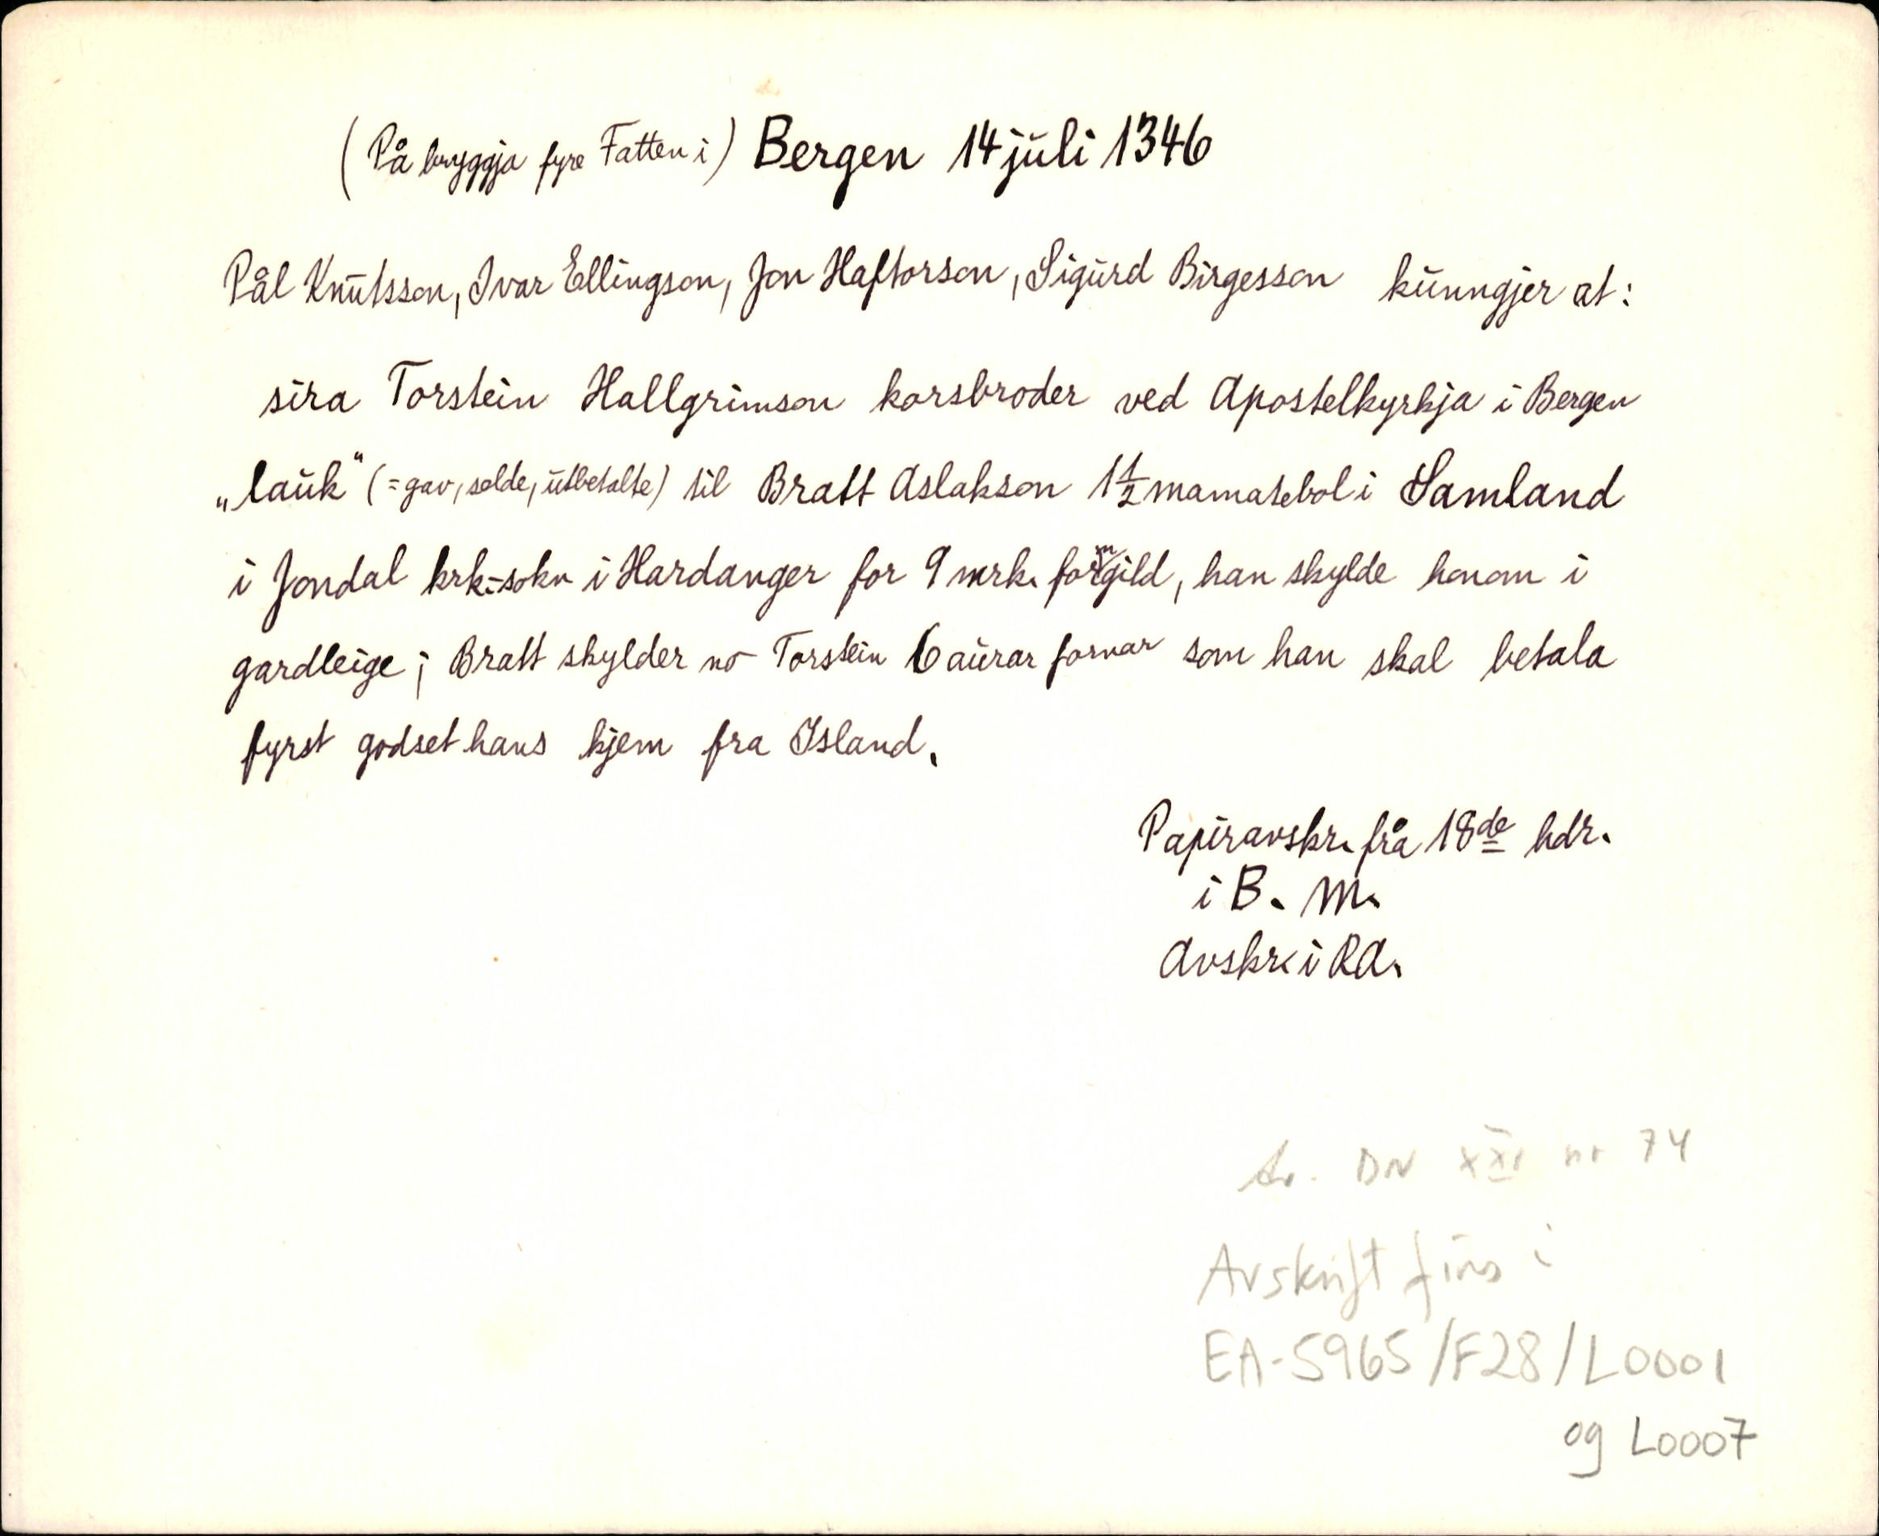 (På bryggja fyre Fatten i) Bergen 14 juli 1346
Pål Knutsson, Ivar Ellingson, Jon Haftorson, Sigurd Birgesson kunngjer at:
sira Torstein Hallgrimson korsbroder ved Apostelkyrkja i Bergen
„lauk" (=gav, selde, utbetalte) til Bratt Aslakson 1 1/2 mamatebol i Samland
i Jondal krk.-sokn i Hardanger for 9 mrk. forngild, han skylde honom i
gardleige; Bratt skylder no Torstein 6 aurar fornar som han skal betala
fyrst godset hans kjem fra Island.
Papiravskr. frå 18de hdr.
i B. M.
Avskr. i RA.
DN XXI nr 74
Avskrift fins i
EA-5965/F28/L0001
og L0007